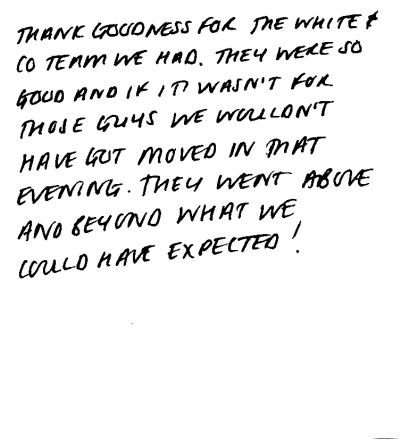 THANK GOODNESS FOR THE WHITE &
CO TEAM WE HAD. THEY WERE SO
GOOD AND IF IT WASN'T FOR
THOSE GUYS WE WOULDN'T
HAVE GOT MOVED IN THAT
EVENING. THEY WENT ABOVE
AND BEYOND WHAT WE
COULD HAVE EXPECTED!